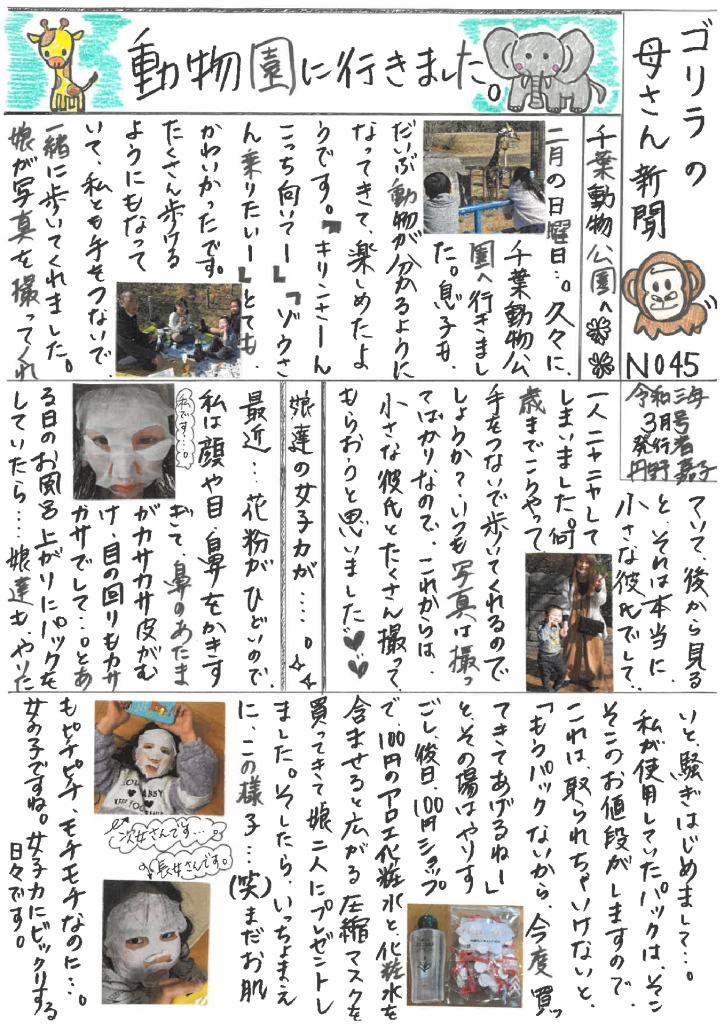 ゴリラの
母さん新聞
No45
令和三年
3月号
発行者
丹野嘉子
動物園に行きました。
千葉動物公園へ
二月の日曜日…。久々に、
千葉動物公
園へ行きまし
た。息子も、
だいぶ動物が分かるように
なってきて、楽しめたよ
うです。『キリンさーん
こっち向いてー』『ゾウさ
ん乗りたいー』とても、
かわいかったです。
たくさん歩ける
ようにもなって
いて、私とも手をつないで
一緒に歩いてくれました。
娘が写真を撮ってくれ
ていて、後から見る
と、それは本当に、
小さな彼氏でして、
一人ニヤニヤして
しまいました。何
歳までこうやって
手をつないで歩いてくれるので
しょうか?いつも写真は撮っ
てばかりなので、これからは、
小さな彼氏とたくさん撮って、
もらおうと思いました
娘達の女子力が…。
最近…花粉がひどいので、
私は顔や目、鼻をかきす
ぎて、鼻のあたま
がカサカサ皮がむ
け、目の回りもカサ
カサでして…。とあ
る日のお風呂上がりにパックを
していたら…娘達も、やりた
私です…
いと騒ぎはじめまして…。
私が使用していたパックは、そこ
そこのお値段がしますので、
これは、取られちゃいけないと、
「もうパックないから、今度買っ
てきてあげるねー」
と、その場はやりす
ごし、後日、100円ショップ
で、100円のアロエ化粧水と、化粧水を
含ませると広がる圧縮マスクを
買ってきて娘二人にプレゼントし
ました。そしたら、いっちょまえ
に、この様子…(笑)まだお肌
もピチピチ、モチモチなのに…。
女の子ですね。女子力にビックリする
日々です。
次女さんです…
長女さんです。